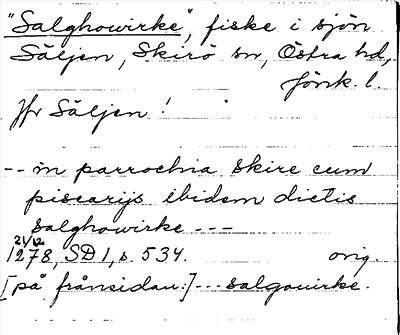 "Salghowirke", fiske i sjön
Säljen, Skirö sn, Östra hd,
Jönk. l.
Jfr Säljen!
-- in parrochia Skire cum
piscarijs ibidem dictis
salghowirke ---
21/12
1278, SD 1, s. 534. orig.
[på frånsidan:] --- salgouirke.